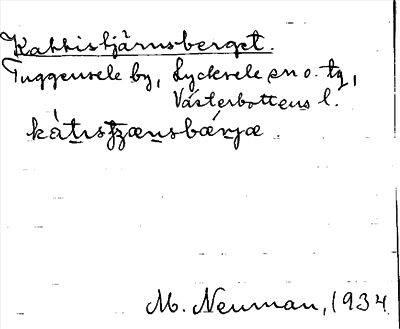 Kattistjärnsberget.
Tuggensele by, Lycksele sn o. tg,
Västerbottens l.
kàtɩsʃæɴsbǽrjæ
M. Neuman, 1934